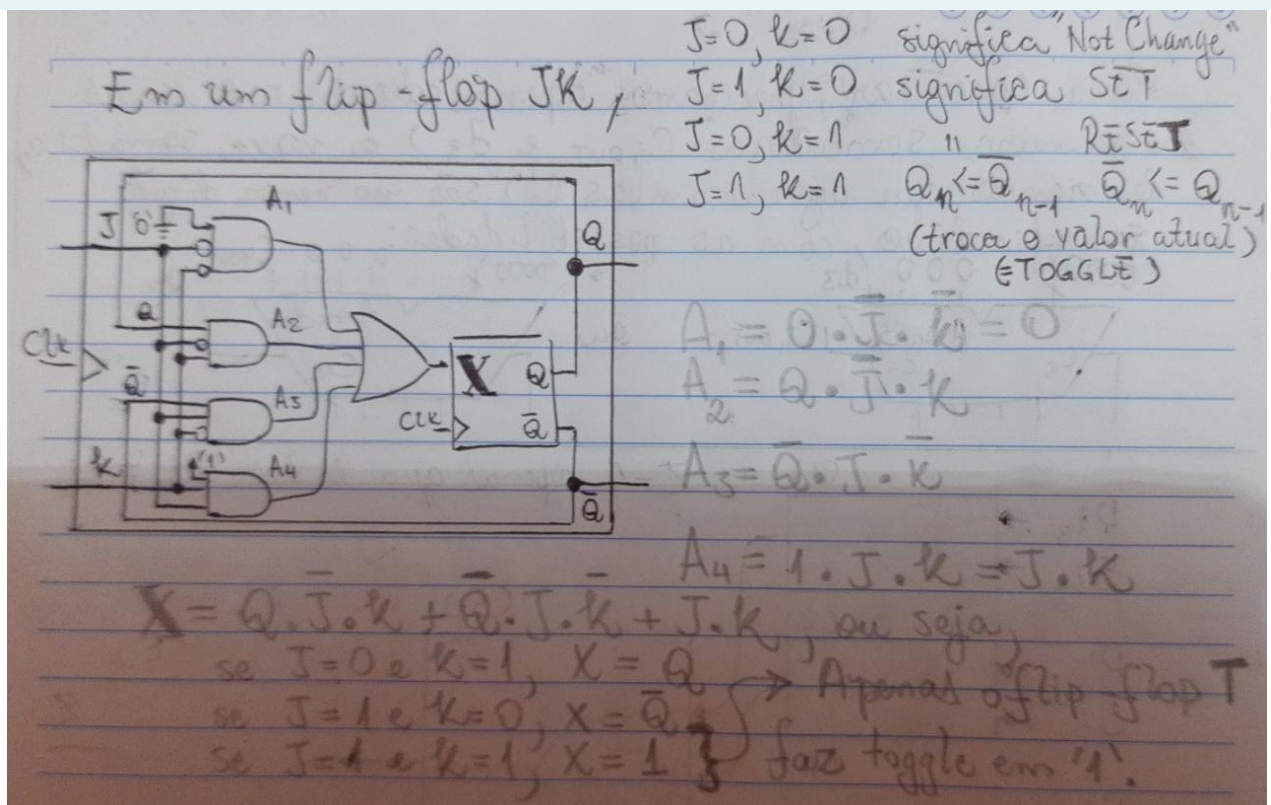 J=0, k=0 significa "Not Change"
Em um flip-flop JK, J=1, k=0 significa SET
J=0, k=1 " RESET
J=1, k=1 Qn <= Q̅n-1 Q̅n <= Qn-1
(troca o valor atual)
(=TOGGLE)
A1
J '0'
Q
Q A2
Clk
Q̅ A3
X Q
Clk Q̅
k '1' A4
Q̅
A1 = 0·J̅·k̅ = 0
A2 = Q·J̅·k
A3 = Q̅·J·k̅
A4 = 1·J·k = J·k
X = Q·J̅·k + Q̅·J·k̅ + J·k, ou seja,
se J=0 e k=1, X = Q
se J=1 e k=0, X = Q̅
se J=1 e k=1, X = 1
} → Apenas o flip-flop T
faz toggle em '1'.